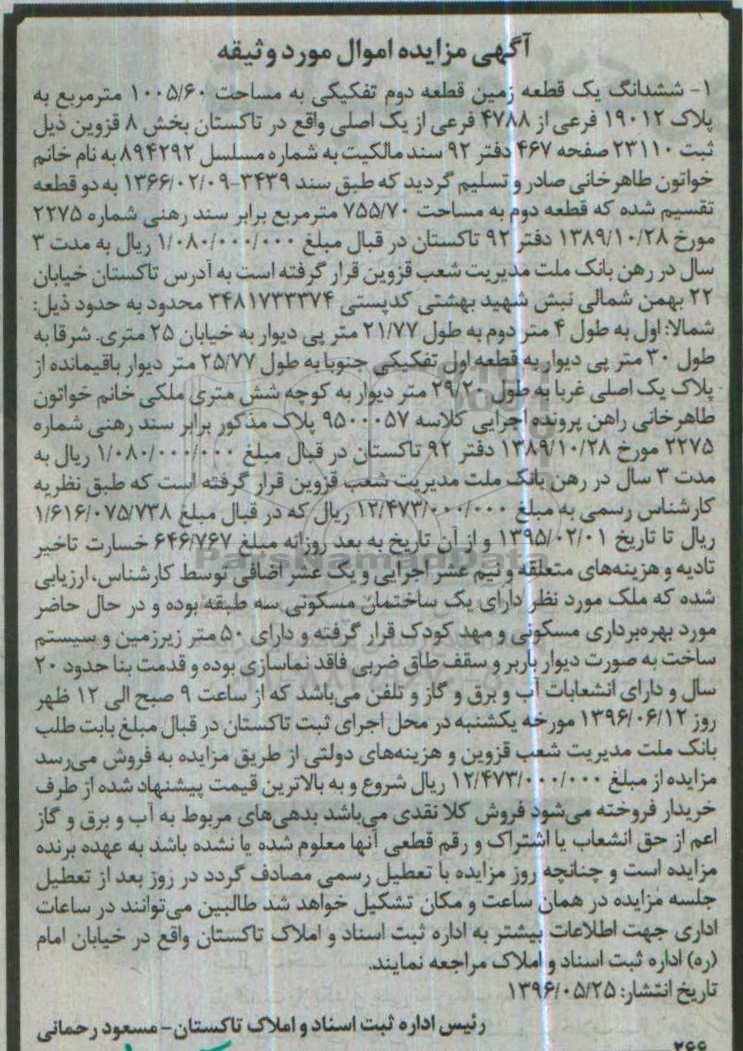 آگهی مزایده اموال مورد وثیقه
۱- ششدانگ یک قطعه زمین قطعه دوم تفکیکی به مساحت ۱۰۰۵/۶۰ مترمربع به
پلاک ۱۹۰۱۲ فرعی از ۴۷۸۸ فرعی از یک اصلی واقع در تاکستان بخش ۸ قزوین ذیل
ثبت ۲۳۱۱۰ صفحه ۴۶۷ دفتر ۹۲ سند مالکیت به شماره مسلسل ۸۹۴۲۹۲ به نام خانم
خواتون طاهرخانی صادر و تسلیم گردید که طبق سند ۳۴۳۹-۱۳۶۶/۰۲/۰۹ به دو قطعه
تقسیم شده که قطعه دوم به مساحت ۷۵۵/۷۰ مترمربع برابر سند رهنی شماره ۲۲۷۵
مورخ ۱۳۸۹/۱۰/۲۸ دفتر ۹۲ تاکستان در قبال مبلغ ۱/۰۸۰/۰۰۰/۰۰۰ ریال به مدت ۳
سال در رهن بانک ملت مدیریت شعب قزوین قرار گرفته است به آدرس تاکستان خیابان
۲۲ بهمن شمالی نبش شهید بهشتی کدپستی ۳۴۸۱۷۳۳۳۷۴ محدود به حدود ذیل:
شمالا: اول به طول ۴ متر دوم به طول ۲۱/۷۷ متر پی دیوار به خیابان ۲۵ متری. شرقا به
طول ۳۰ متر پی دیوار به قطعه اول تفکیکی جنوبا به طول ۲۵/۷۷ متر دیوار باقیمانده از
پلاک یک اصلی غربا به طول ۲۹/۲۰ متر دیوار به کوچه شش متری ملکی خانم خواتون
طاهرخانی راهن پرونده اجرایی کلاسه ۹۵۰۰۰۵۷ پلاک مذکور برابر سند رهنی شماره
۲۲۷۵ مورخ ۱۳۸۹/۱۰/۲۸ دفتر ۹۲ تاکستان در قبال مبلغ ۱/۰۸۰/۰۰۰/۰۰۰ ریال به
مدت ۳ سال در رهن بانک ملت مدیریت شعب قزوین قرار گرفته است که طبق نظریه
کارشناس رسمی به مبلغ ۱۲/۴۷۳/۰۰۰/۰۰۰ ریال که در قبال مبلغ ۱/۶۱۶/۰۷۵/۷۳۸
ریال تا تاریخ ۱۳۹۵/۰۲/۰۱ و از آن تاریخ به بعد روزانه مبلغ ۶۴۶/۷۶۷ خسارت تاخیر
تادیه و هزینه‌های متعلقه و نیم عشر اجرایی و یک عشر اضافی توسط کارشناس، ارزیابی
شده که ملک مورد نظر دارای یک ساختمان مسکونی سه طبقه بوده و در حال حاضر
مورد بهره‌برداری مسکونی و مهد کودک قرار گرفته و دارای ۵۰ متر زیرزمین و سیستم
ساخت به صورت دیوار باربر و سقف طاق ضربی فاقد نماسازی بوده و قدمت بنا حدود ۲۰
سال و دارای انشعابات آب و برق و گاز و تلفن می‌باشد که از ساعت ۹ صبح الی ۱۲ ظهر
روز ۱۳۹۶/۰۶/۱۲ مورخه یکشنبه در محل اجرای ثبت تاکستان در قبال مبلغ بابت طلب
بانک ملت مدیریت شعب قزوین و هزینه‌های دولتی از طریق مزایده به فروش می‌رسد
مزایده از مبلغ ۱۲/۴۷۳/۰۰۰/۰۰۰ ریال شروع و به بالاترین قیمت پیشنهاد شده از طرف
خریدار فروخته می‌شود فروش کلا نقدی می‌باشد بدهی‌های مربوط به آب و برق و گاز
اعم از حق انشعاب یا اشتراک و رقم قطعی آنها معلوم شده یا نشده باشد به عهده برنده
مزایده است و چنانچه روز مزایده با تعطیل رسمی مصادف گردد در روز بعد از تعطیل
جلسه مزایده در همان ساعت و مکان تشکیل خواهد شد طالبین می‌توانند در ساعات
اداری جهت اطلاعات بیشتر به اداره ثبت اسناد و املاک تاکستان واقع در خیابان امام
(ره) اداره ثبت اسناد و املاک مراجعه نمایند.
تاریخ انتشار: ۱۳۹۶/۰۵/۲۵
رئیس اداره ثبت اسناد و املاک تاکستان- مسعود رحمانی
۲۶۶
ParsNamadData